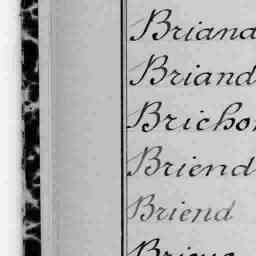 Briand
Briand
Brichon
Briend
Briend